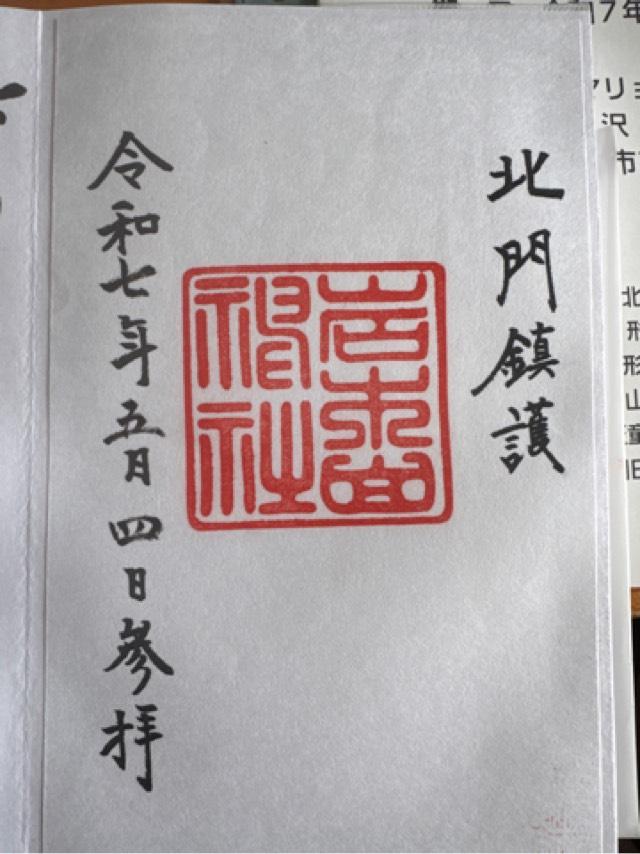 北門鎮護
岩木山
神社
令和七年五月四日参拝
7年
沢
市
北
形
山